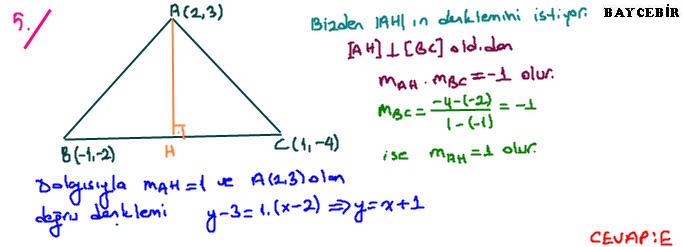 5./
A(2,3)
B(-1,-2)
H
C(1,-4)
Bizden |AH| ın denklemini istiyor.
BAYCEBİR
[AH] ⊥ [BC] olduğundan
m_AH . m_BC = -1 olur.
m_BC = \frac{-4-(-2)}{1-(-1)} = -1
ise m_AH = 1 olur.
Dolayısıyla m_AH = 1 ve A(2,3) olan
doğru denklemi y-3=1.(x-2) ⇒ y=x+1
CEVAP:E